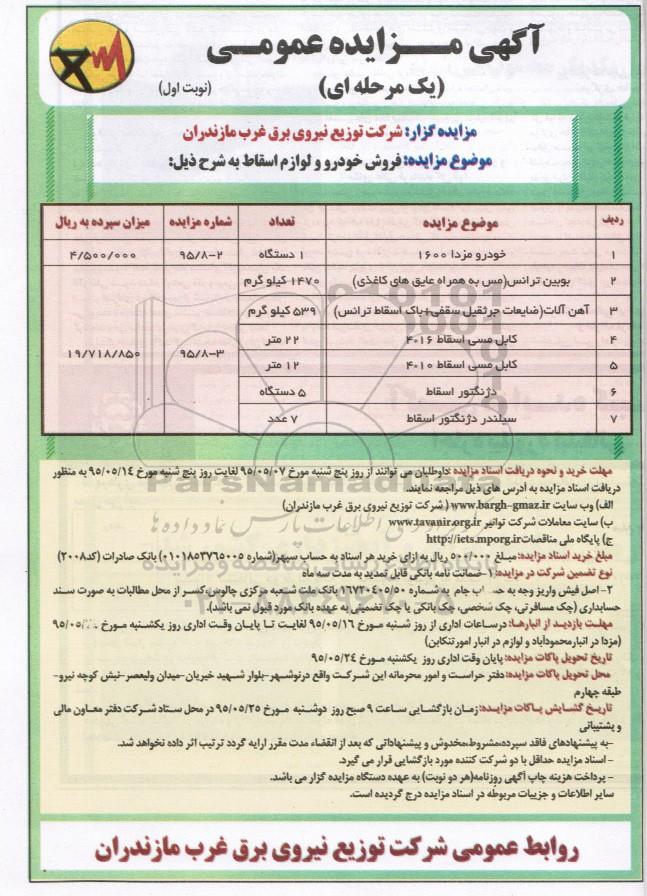 آگهی مزایده عمومی
(یک مرحله ای)
(نوبت اول)
مزایده گزار: شرکت توزیع نیروی برق غرب مازندران
موضوع مزایده: فروش خودرو و لوازم اسقاط به شرح ذیل:
ردیف موضوع مزایده تعداد شماره مزایده میزان سپرده به ریال
۱ خودرو مزدا ۱۶۰۰ ۱ دستگاه ۹۵/۸-۲ ۴/۵۰۰/۰۰۰
۲ بوبین ترانس(مس به همراه عایق های کاغذی) ۱۴۷۰ کیلو گرم
۳ آهن آلات(ضایعات جرثقیل سقفی+باک اسقاط ترانس) ۵۳۹ کیلو گرم
۴ کابل مسی اسقاط ۴۰۱۶ ۲۲ متر
۹۵/۸-۳ ۱۹/۷۱۸/۸۵۰
۵ کابل مسی اسقاط ۴۰۱۰ ۱۲ متر
۶ دژنگتور اسقاط ۵ دستگاه
۷ سیلندر دژنگتور اسقاط ۷ عدد
مهلت خرید و نحوه دریافت اسناد مزایده: داوطلبان می توانند از روز پنج شنبه مورخ ۹۵/۰۵/۰۷ لغایت روز پنج شنبه مورخ ۹۵/۰۵/۱۴ به منظور
دریافت اسناد مزایده به آدرس های ذیل مراجعه نمایند.
الف) وب سایت www.bargh-gmaz.ir ( شرکت توزیع نیروی برق غرب مازندران)
ب) سایت معاملات شرکت توانیر www.tavanir.org.ir
ج) پایگاه ملی مناقصات http://iets.mporg.ir
مبلغ خرید اسناد مزایده: مبلغ ۵۰۰/۰۰۰ ریال به ازای خرید هر اسناد به حساب سپهر(شماره ۰۱۰۱۸۵۳۷۶۵۰۰۵) بانک صادرات (کد۲۰۰۸)
نوع تضمین شرکت در مزایده: ۱-ضمانت نامه بانکی قابل تمدید به مدت سه ماه
۲- اصل فیش واریز وجه به حساب جام به شماره ۱۶۷۲۰۴۰۵/۵۰ بانک ملت شعبه مرکزی چالوس،کسر از محل مطالبات به صورت سند
حسابداری (چک مسافرتی، چک شخصی، چک بانکی یا چک تضمینی به عهده بانک مورد قبول نمی باشد).
مهلت بازدید از انبارها: در ساعات اداری از روز شنبه مورخ ۹۵/۰۵/۱۶ لغایت تا پایان وقت اداری روز یکشنبه مورخ ۹۵/۰۵/
(مزدا در انبارمحمودآباد و لوازم در انبار امورتنکابن)
تاریخ تحویل پاکات مزایده: پایان وقت اداری روز یکشنبه مورخ ۹۵/۰۵/۲۴
محل تحویل پاکات مزایده: دفتر حراست و امور محرمانه این شرکت واقع درنوشهر-بلوار شهید خیریان-میدان ولیعصر-نبش کوچه نیرو-
طبقه چهارم
تاریخ گشایش پاکات مزایده: زمان بازگشایی ساعت ۹ صبح روز دوشنبه مورخ ۹۵/۰۵/۲۵ در محل ستاد شرکت دفتر معاون مالی
و پشتیبانی
-به پیشنهادهای فاقد سپرده،مشروط،مخدوش و پیشنهاداتی که بعد از انقضاء مدت مقرر ارایه گردد ترتیب اثر داده نخواهد شد.
- اسناد مزایده حداقل با دو شرکت کننده مورد بازگشایی قرار می گیرد.
- پرداخت هزینه چاپ آگهی روزنامه(هر دو نوبت) به عهده دستگاه مزایده گزار می باشد.
سایر اطلاعات و جزییات مربوطه در اسناد مزایده درج گردیده است.
روابط عمومی شرکت توزیع نیروی برق غرب مازندران
ParsNamadData